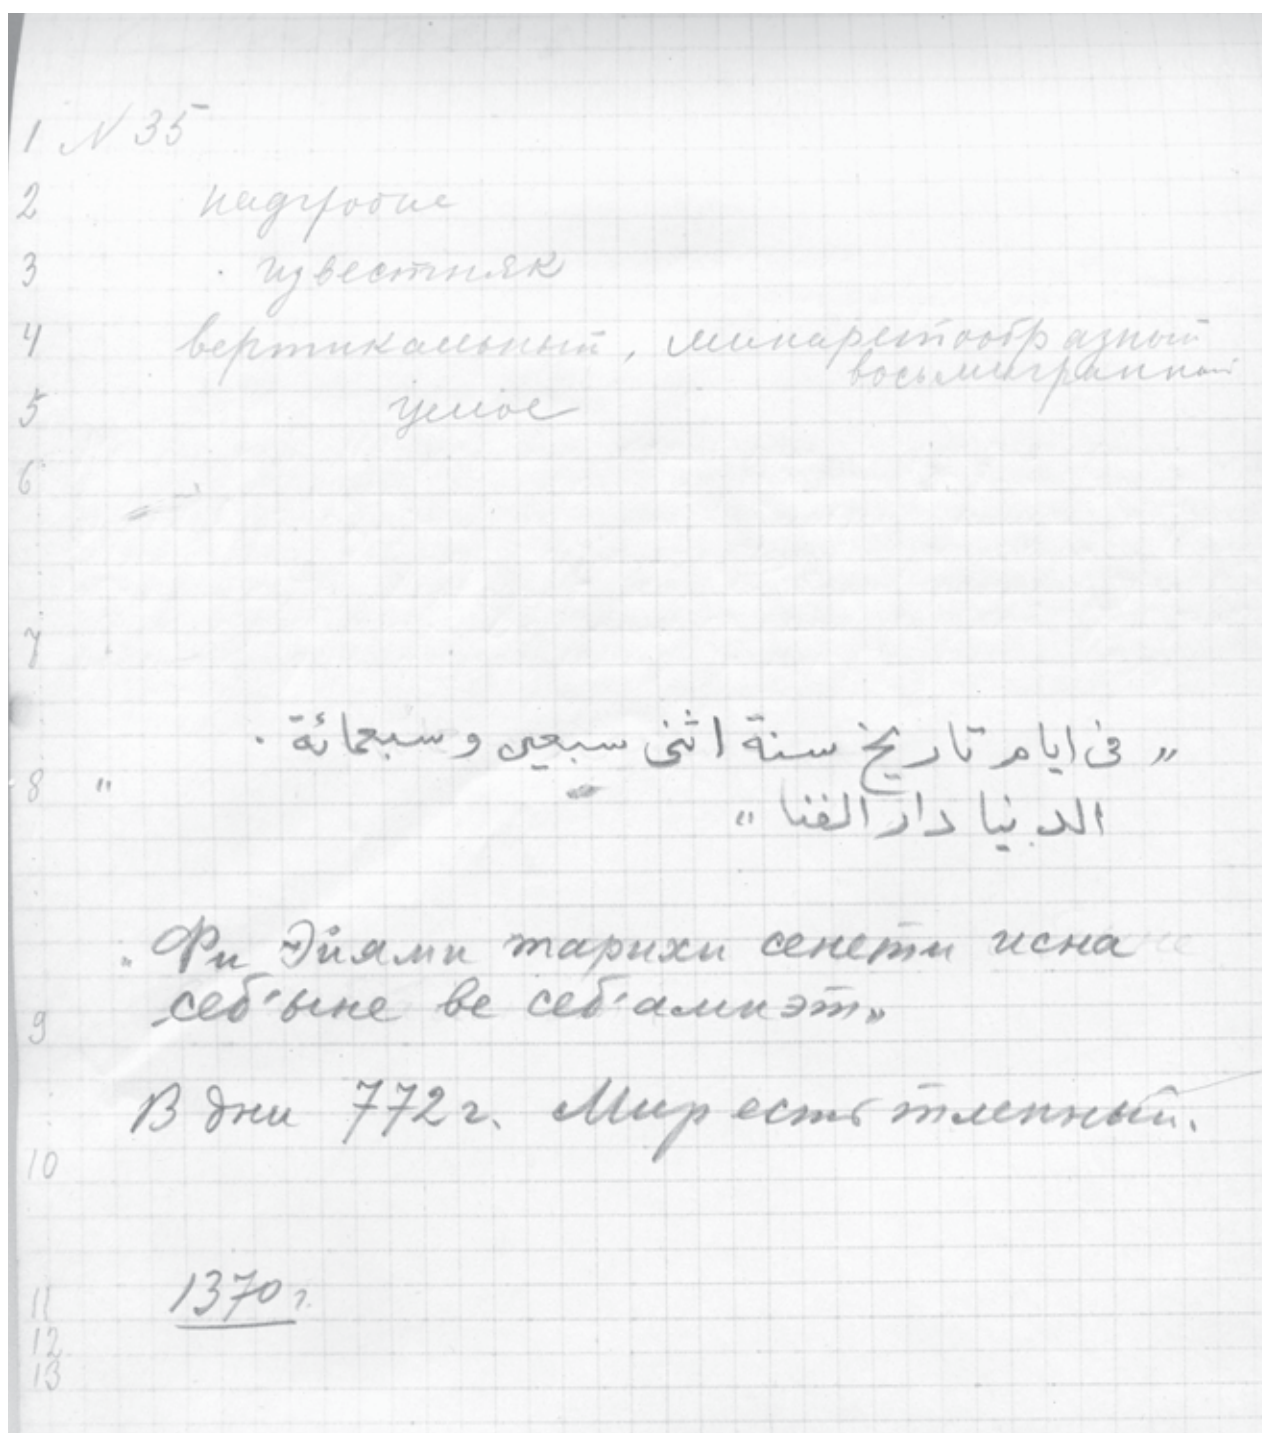 1 N 35
2 надгробие
3 известняк
4 вертикальный, минаретообразный
восьмигранный
5 целое
6
7
„ فى ايام تاريخ سنة اثنى سبعين و سبعمائة .
8 "
الدنيا دار الفنا “
„Фи Эйями тарихи сенети исна
себ'ыне ве себ'амиэт„
9
В дни 772 г. Мир есть тленный.
10
11 1370 г.
12
13